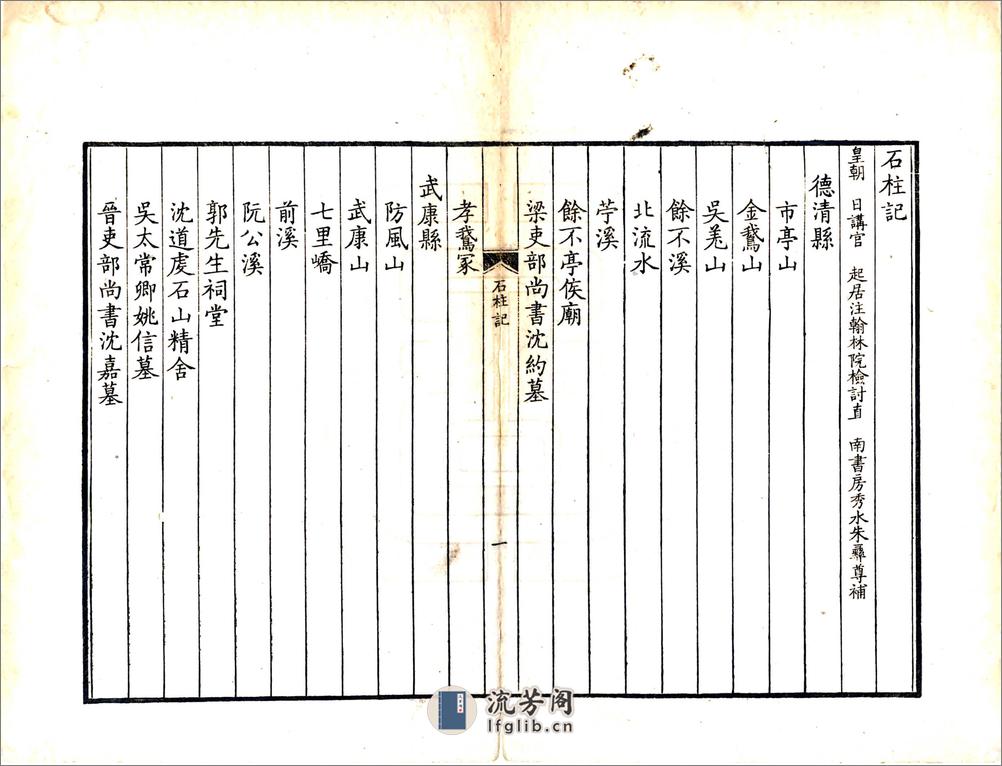 石柱記
皇朝 日講官 起居注翰林院檢討直 南書房秀水朱彞尊補
德清縣
市亭山
金鵞山
吳羗山
餘不溪
北流水
苧溪
餘不亭侯廟
梁吏部尚書沈約墓
石柱記
一
孝鵞冢
武康縣
防風山
武康山
七里嶠
前溪
阮公溪
郭先生祠堂
沈道虔石山精舍
吳太常卿姚信墓
晉吏部尚書沈嘉墓
流芳阁
lfglib.cn